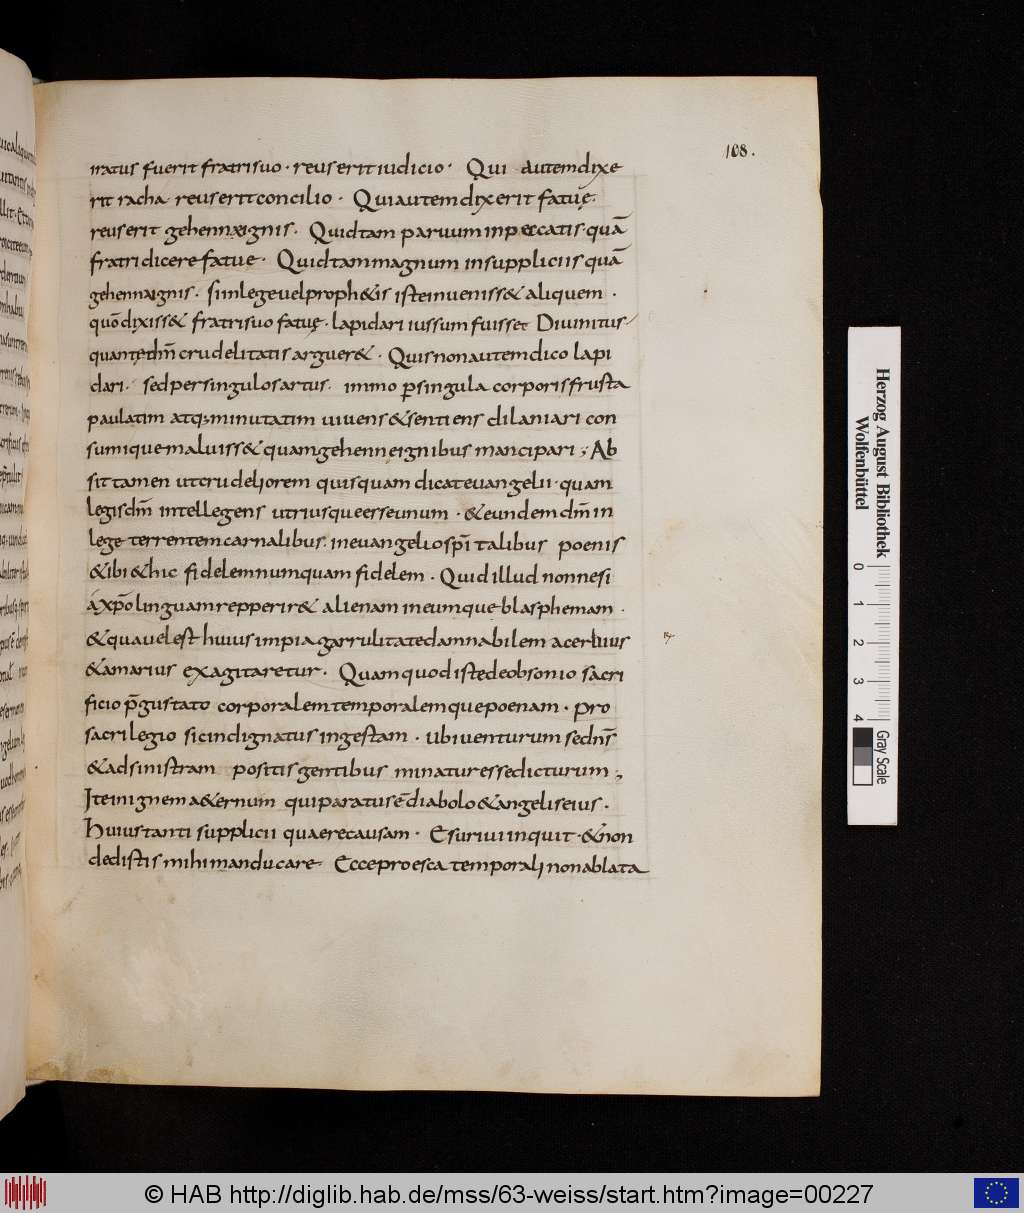 108.
iratus fuerit fratri suo · reus erit iudicio · Qui autem dixe
rit racha reus erit concilio · Qui autem dixerit fatuę·
reus erit gehennæ ignis · Quid tam paruum in peccatis · quā
fratri dicere fatue · Quid tam magnum in suppliciis quā
gehennæ ignis · si in lege uel proph&is iste inueniss& aliquem ·
quō dixiss& fratri suo fatuę · lapidari iussum fuisset Diuinitus·
quantę dm̄ crudelitatis arguer& · Quis non autem dico lapi
dari · sed per singulos artus · immo ꝑ singula corporis frusta
paulatim atq; minutatim uiuens & sentiens dilaniari con
sumique maluiss& quam gehenne ignibus mancipari ; Ab
sit tamen ut crudeliorem quisquam dicat euangelii · quam
legis dm̄ intellegens utriusque esse unum · & eundem dm̄ in
lege terrentem carnalibus · in euangelio spī talibus poenis
& ibi & hic fidelem numquam fidelem · Quid illud nonne si
a xp̄o linguam repperir& alienam in eumque blasphemam ·
& qua uel est huius impia garrulitate damnabilem acerbius
& amarius exagitaretur · Quam quod iste de obsonio sacri
ficio p̄gustato corporalem temporalemque poenam · pro
sacrilegio sic indignatus ingestam · Ubi uenturum se dn̄s
& ad sinistram positis gentibus minatur esse dicturum ;
Ite in ignem a&ernum qui paratus ē diabolo & angelis eius ·
Huius tanti supplicii quaere causam · Esuriui inquit · & non
dedistis mihi manducare Ecce pro esca temporali non ablata
Herzog August Bibliothek
Wolfenbüttel
0 1 2 3 4
Gray Scale
© HAB http://diglib.hab.de/mss/63-weiss/start.htm?image=00227